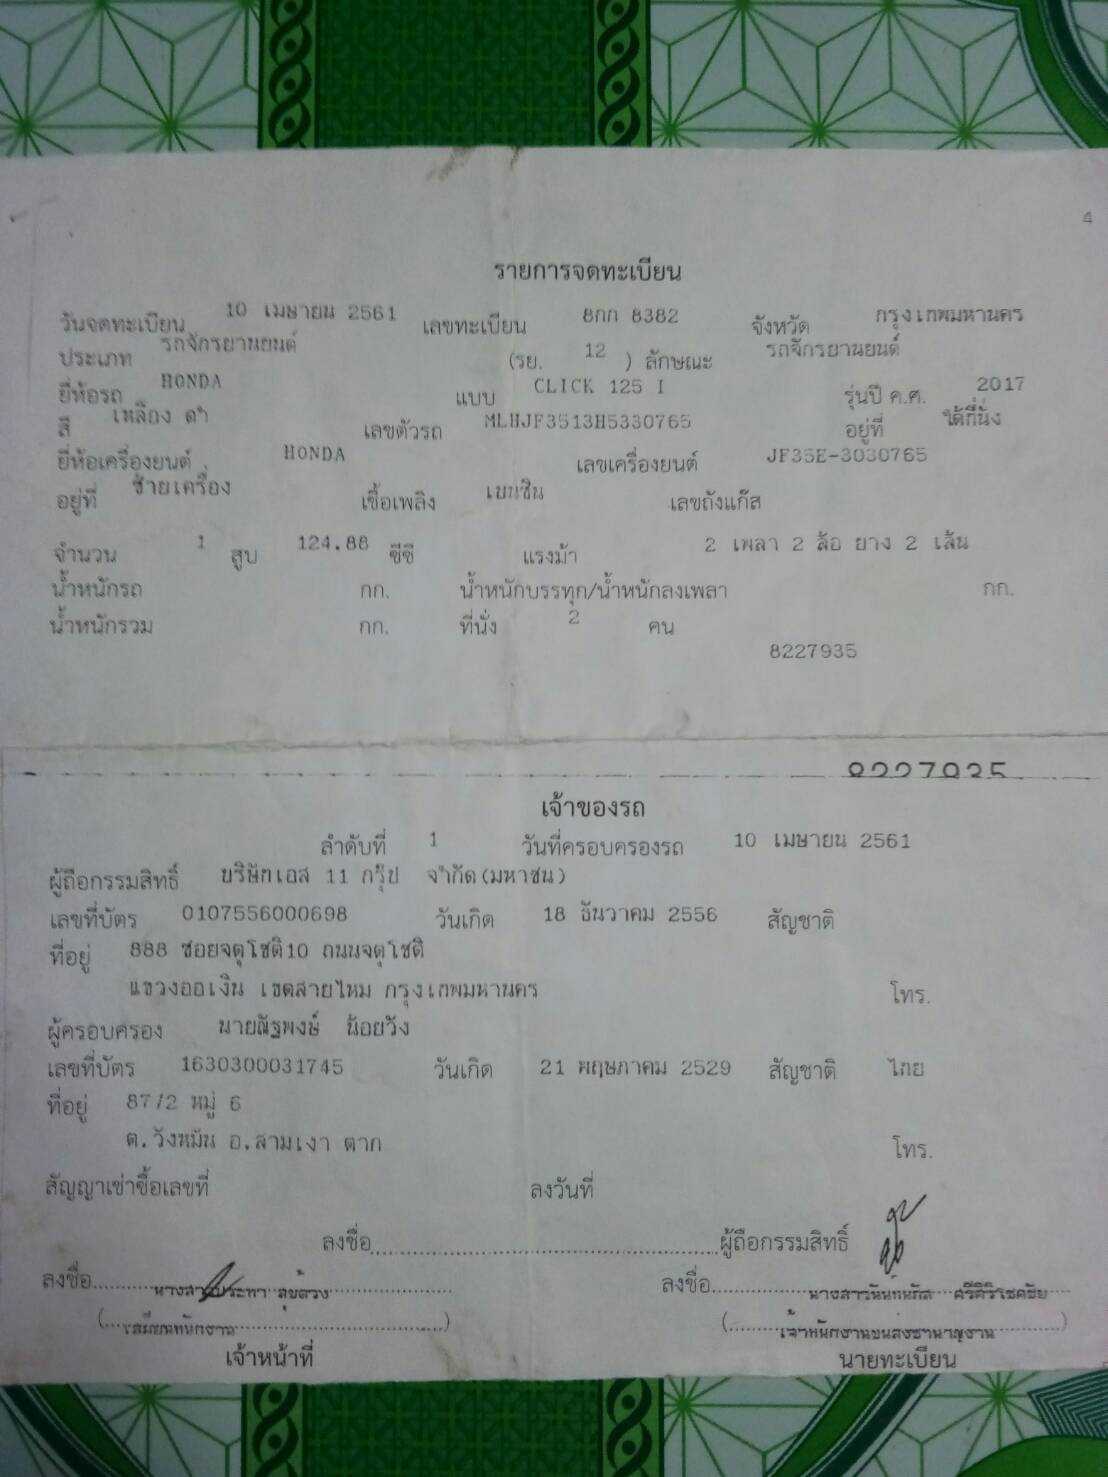 4
รายการจดทะเบียน
วันจดทะเบียน 10 เมษายน 2561 เลขทะเบียน 8กก 8382 จังหวัด กรุงเทพมหานคร
ประเภท รถจักรยานยนต์ (รย. 12 ) ลักษณะ รถจักรยานยนต์
ยี่ห้อรถ HONDA แบบ CLICK 125 I รุ่นปี ค.ศ. 2017
สี เหลือง ดำ เลขตัวรถ MLHJF3513H5330765 อยู่ที่ ใต้ที่นั่ง
ยี่ห้อเครื่องยนต์ HONDA เลขเครื่องยนต์ JF35E-3030765
อยู่ที่ ซ้ายเครื่อง เชื้อเพลิง เบนซิน เลขถังแก๊ส
จำนวน 1 สูบ 124.88 ซีซี แรงม้า 2 เพลา 2 ล้อ ยาง 2 เส้น
น้ำหนักรถ กก. น้ำหนักบรรทุก/น้ำหนักลงเพลา กก.
น้ำหนักรวม กก. ที่นั่ง 2 คน
8227935
8227935
เจ้าของรถ
ลำดับที่ 1 วันที่ครอบครองรถ 10 เมษายน 2561
ผู้ถือกรรมสิทธิ์ บริษัทเอส 11 กรุ๊ป จำกัด(มหาชน)
เลขที่บัตร 0107556000698 วันเกิด 18 ธันวาคม 2556 สัญชาติ
ที่อยู่ 888 ซอยจตุโชติ10 ถนนจตุโชติ
แขวงออเงิน เขตสายไหม กรุงเทพมหานคร โทร.
ผู้ครอบครอง นายณัฐพงษ์ น้อยวัง
เลขที่บัตร 1630300031745 วันเกิด 21 พฤษภาคม 2529 สัญชาติ ไทย
ที่อยู่ 87/2 หมู่ 6
ต.วังหมัน อ.สามเงา ตาก โทร.
สัญญาเช่าซื้อเลขที่ ลงวันที่
ลงชื่อ ผู้ถือกรรมสิทธิ์
ลงชื่อ สุขด้วง ลงชื่อ
(เสมียนพนักงาน) (เจ้าพนักงานขนส่งชำนาญงาน)
เจ้าหน้าที่ นายทะเบียน